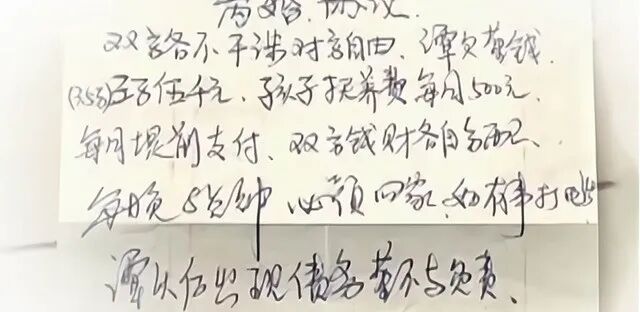 离婚.协议.
双方各不干涉对方自由、谭欠黄钱
(3.5万)叁万伍千元、孩子抚养费每月500元、
每月提前支付、双方钱财各自分配、
每晚 8点钟 必须回家、如有事打电话
谭以后出现债务黄不与负责、